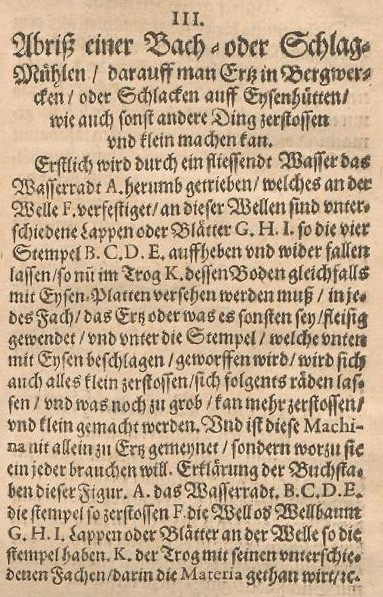 III.
Abriß einer Bach-oder Schlag-
Mühlen / darauff man Ertz in Bergwer-
cken / oder Schlacken auff Eysenhütten /
wie auch sonst andere Ding zerstossen
vnd klein machen kan.
Erstlich wird durch ein fliessendt Wasser das
Wasserradt A. herumb getrieben / welches an der
Welle F. verfestiget / an dieser Wellen sind vnter-
schiedene Lappen oder Blätter G. H. I. so die vier
Stempel B. C. D. E. auffheben vnd wider fallen
lassen / so nũ im Trog K. dessen Boden gleichfalls
mit Eysen-Platten versehen werden muß / in je-
des Fach / das Ertz oder was es sonsten sey / fleisig
gewendet / vnd vnter die Stempel / welche vnten
mit Eysen beschlagen / geworffen wird / wird sich
auch alles klein zerstossen / sich folgents räden las-
sen / vnd was noch zu grob / kan mehr zerstossen /
vnd klein gemacht werden. Vnd ist diese Machi-
na nit allein zu Ertz gemeynet / sondern worzu sie
ein jeder brauchen will. Erklärung der Buchsta-
ben dieser Figur. A. das Wasserradt. B. C. D. E.
die stempel so zerstossen F. die Well os Wellbaum
G. H. I. Lappen oder Blätter an der Welle so die
stempel haben. K. der Trog mit seinen vnterschie-
denen Fachen / darin die Materia gethan wirt / ꝛc.